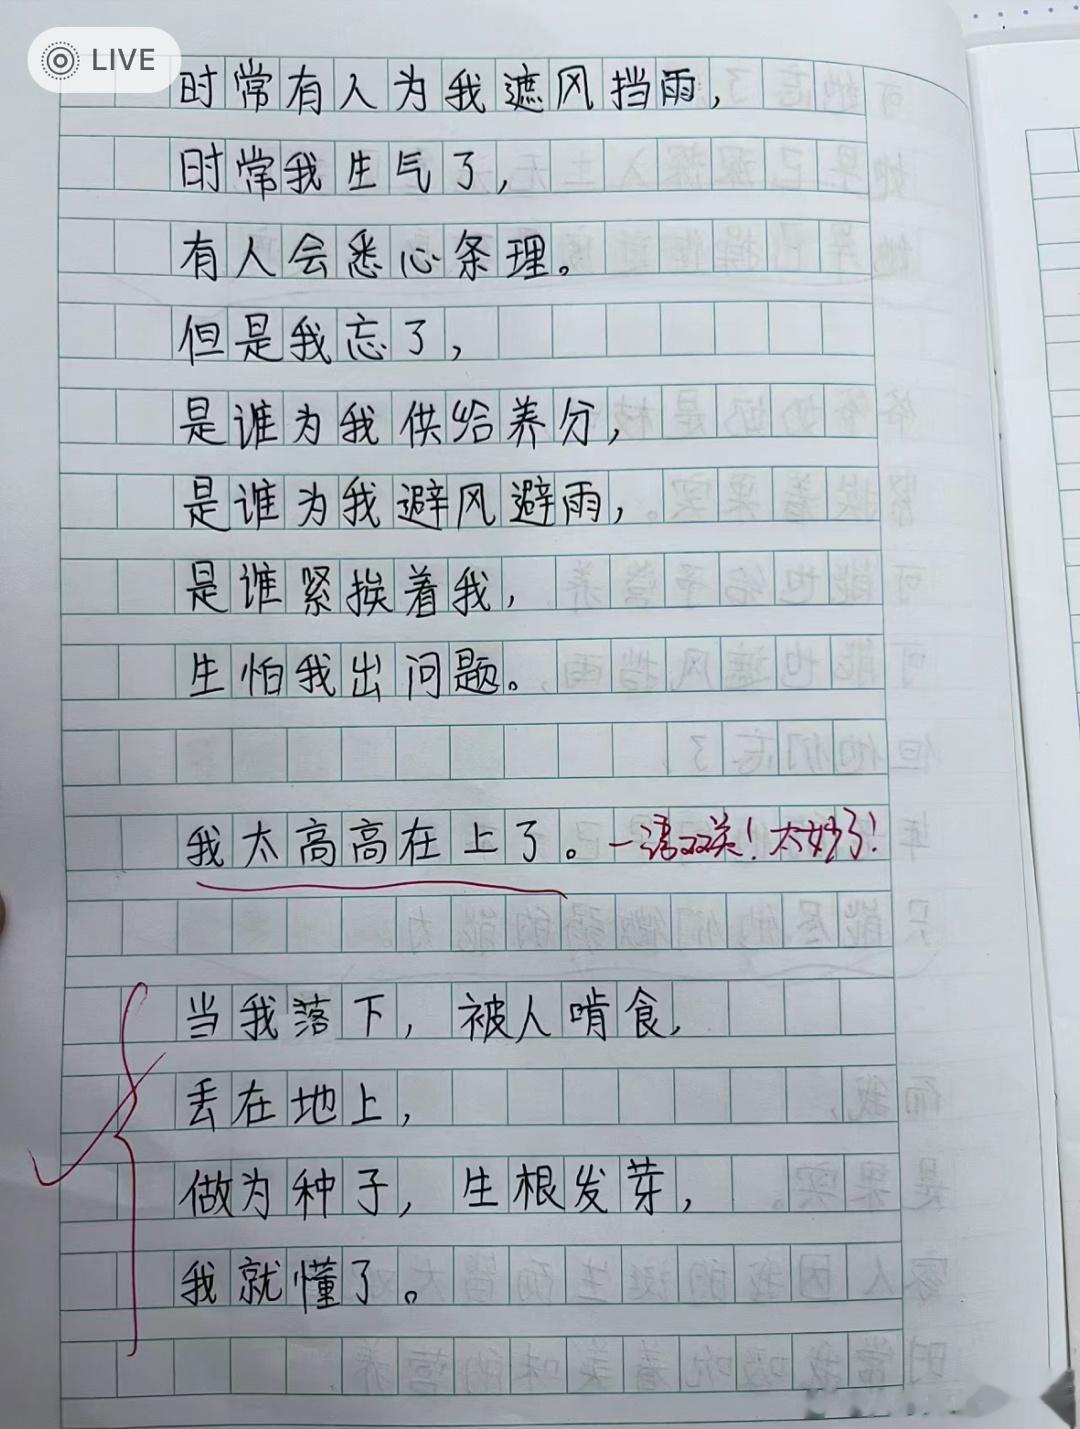 LIVE
时常有人为我遮风挡雨,
时常我生气了,
有人会悉心条理。
但是我忘了,
是谁为我供给养分,
是谁为我避风避雨,
是谁紧挨着我,
生怕我出问题。
我太高高在上了。一语双关！太妙了！
当我落下, 被人啃食,
丢在地上,
做为种子, 生根发芽,
我就懂了。